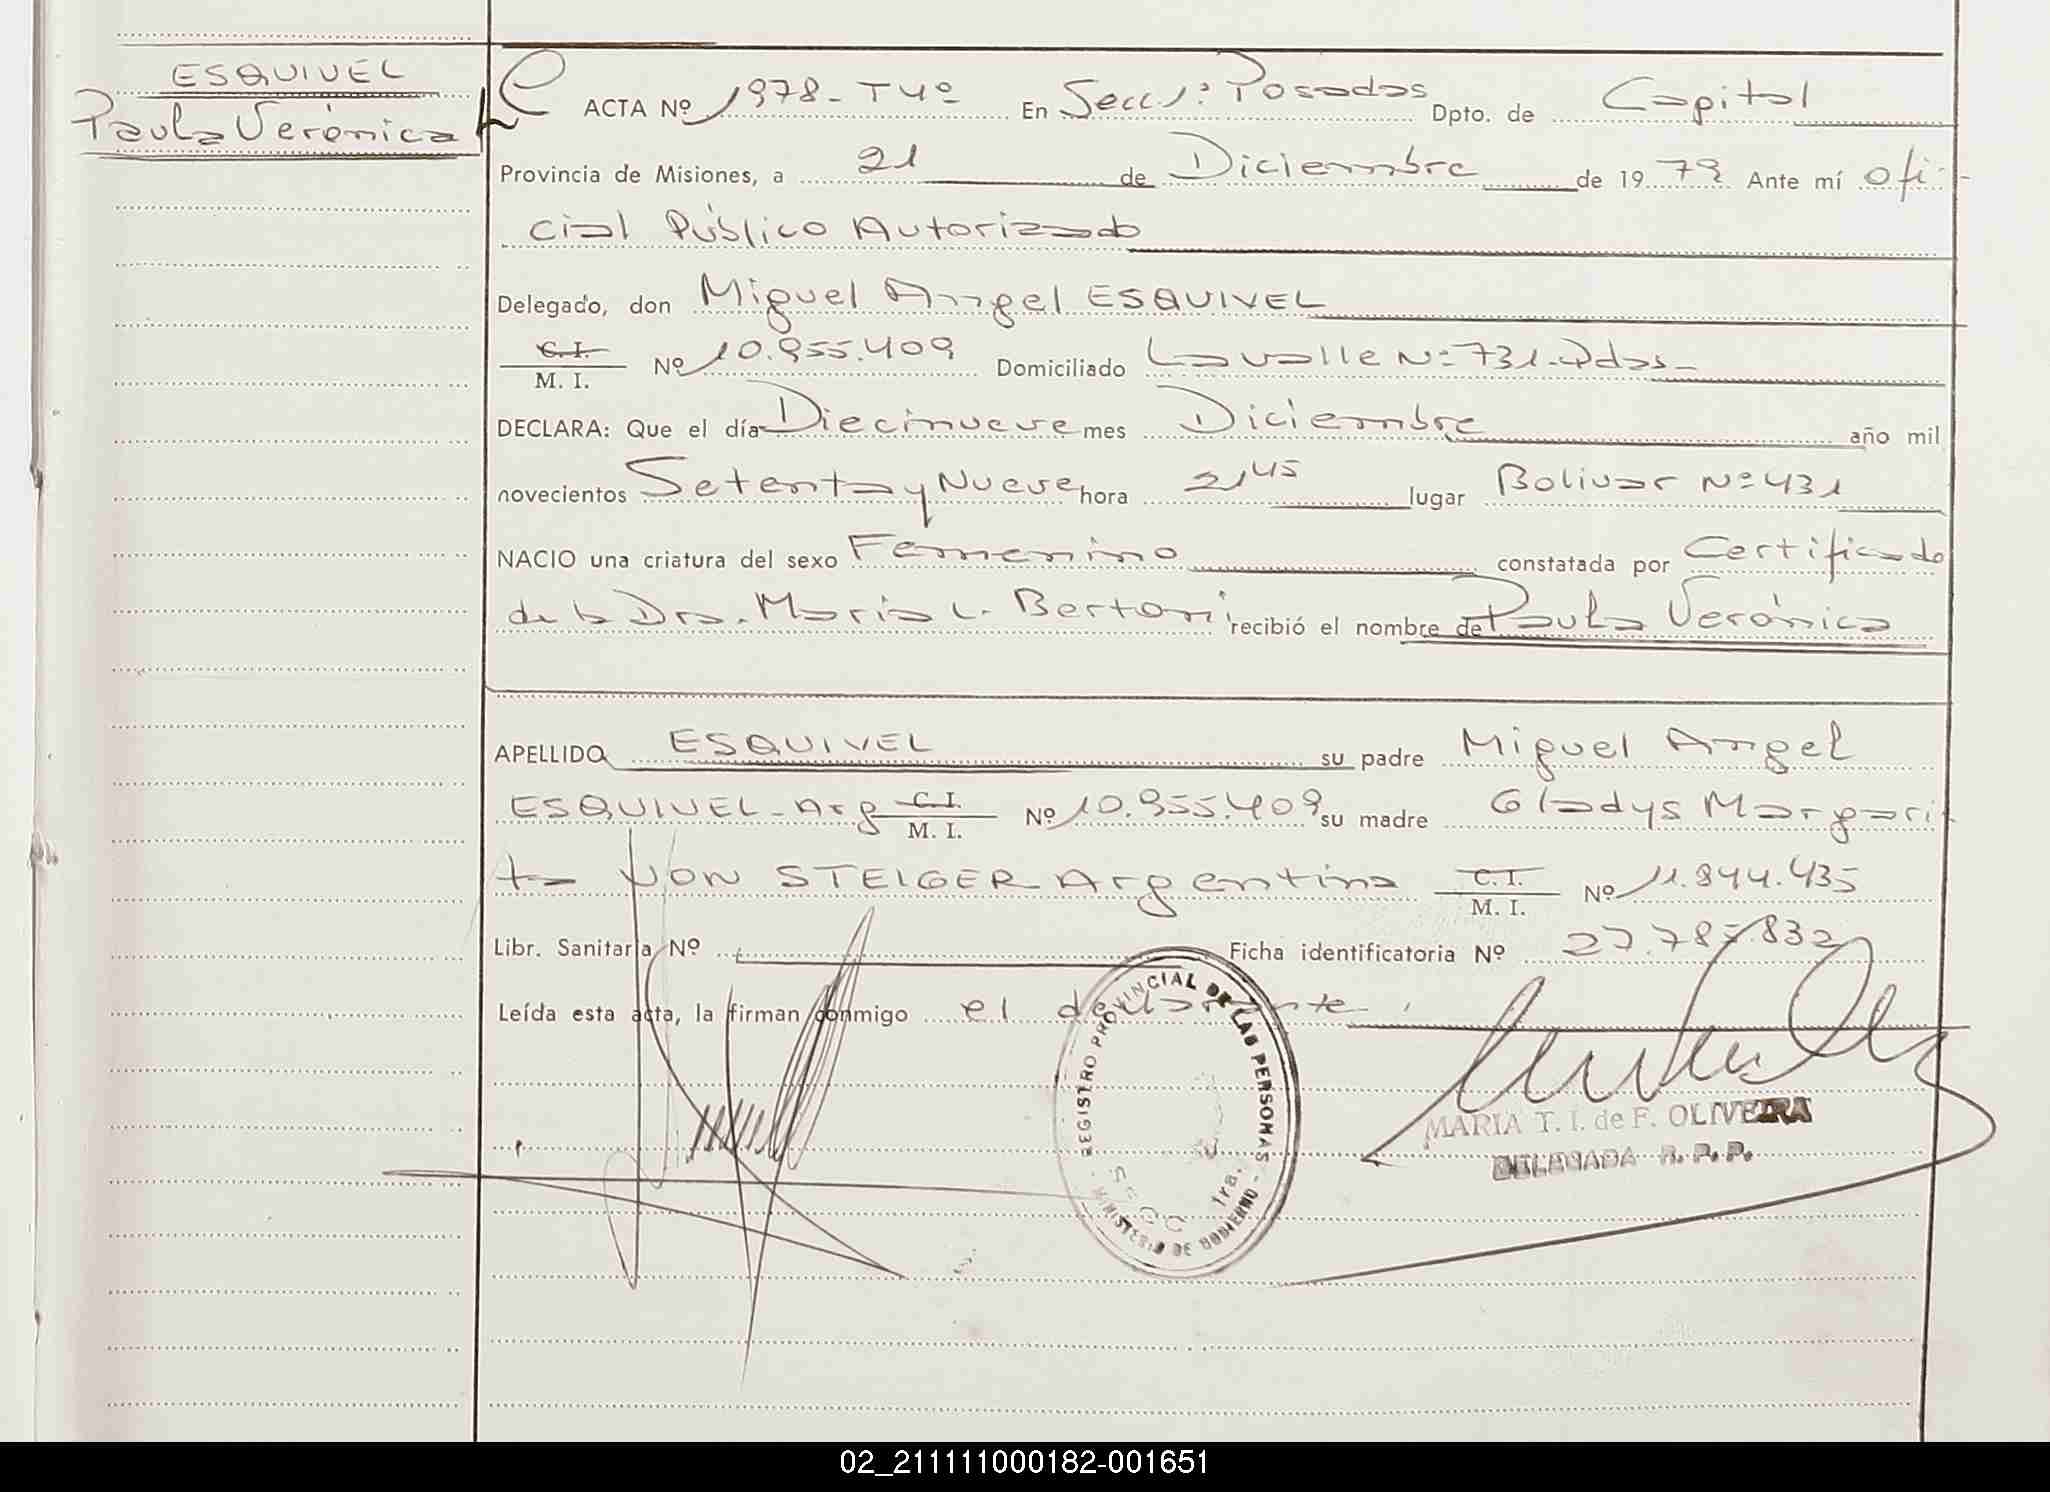 ESQUIVEL
Paula Verónica
ACTA Nº 1978-T4º En Secc.1ª Posadas Dpto. de Capital
Provincia de Misiones, a 21 de Diciembre de 1979 Ante mí ofi-
cial Público Autorizado
Delegado, don Miguel Angel ESQUIVEL
C. I. / M. I. Nº 10.955.409 Domiciliado Lavalle Nº 731-Pdas-
DECLARA: Que el día Diecinueve mes Diciembre año mil
novecientos Setenta y Nueve hora 21 45 lugar Bolivar Nº 431
NACIO una criatura del sexo Femenino constatada por Certificado
de la Dra. Maria L. Bertoni recibió el nombre de Paula Verónica
APELLIDO ESQUIVEL su padre Miguel Angel
ESQUIVEL-Arg C. I. / M. I. Nº 10.955.409 su madre Gladys Margari-
ta VON STEIGER Argentina C. I. / M. I. Nº 11.944.435
Libr. Sanitaria Nº Ficha identificatoria Nº 27.787.832
Leída esta acta, la firman conmigo el declarante.
REGISTRO PROVINCIAL DE LAS PERSONAS
SECC 1ra.
MINISTERIO DE GOBIERNO
MARIA T. I. de F. OLIVEIRA
DELEGADA R. P. P.
02_211111000182-001651